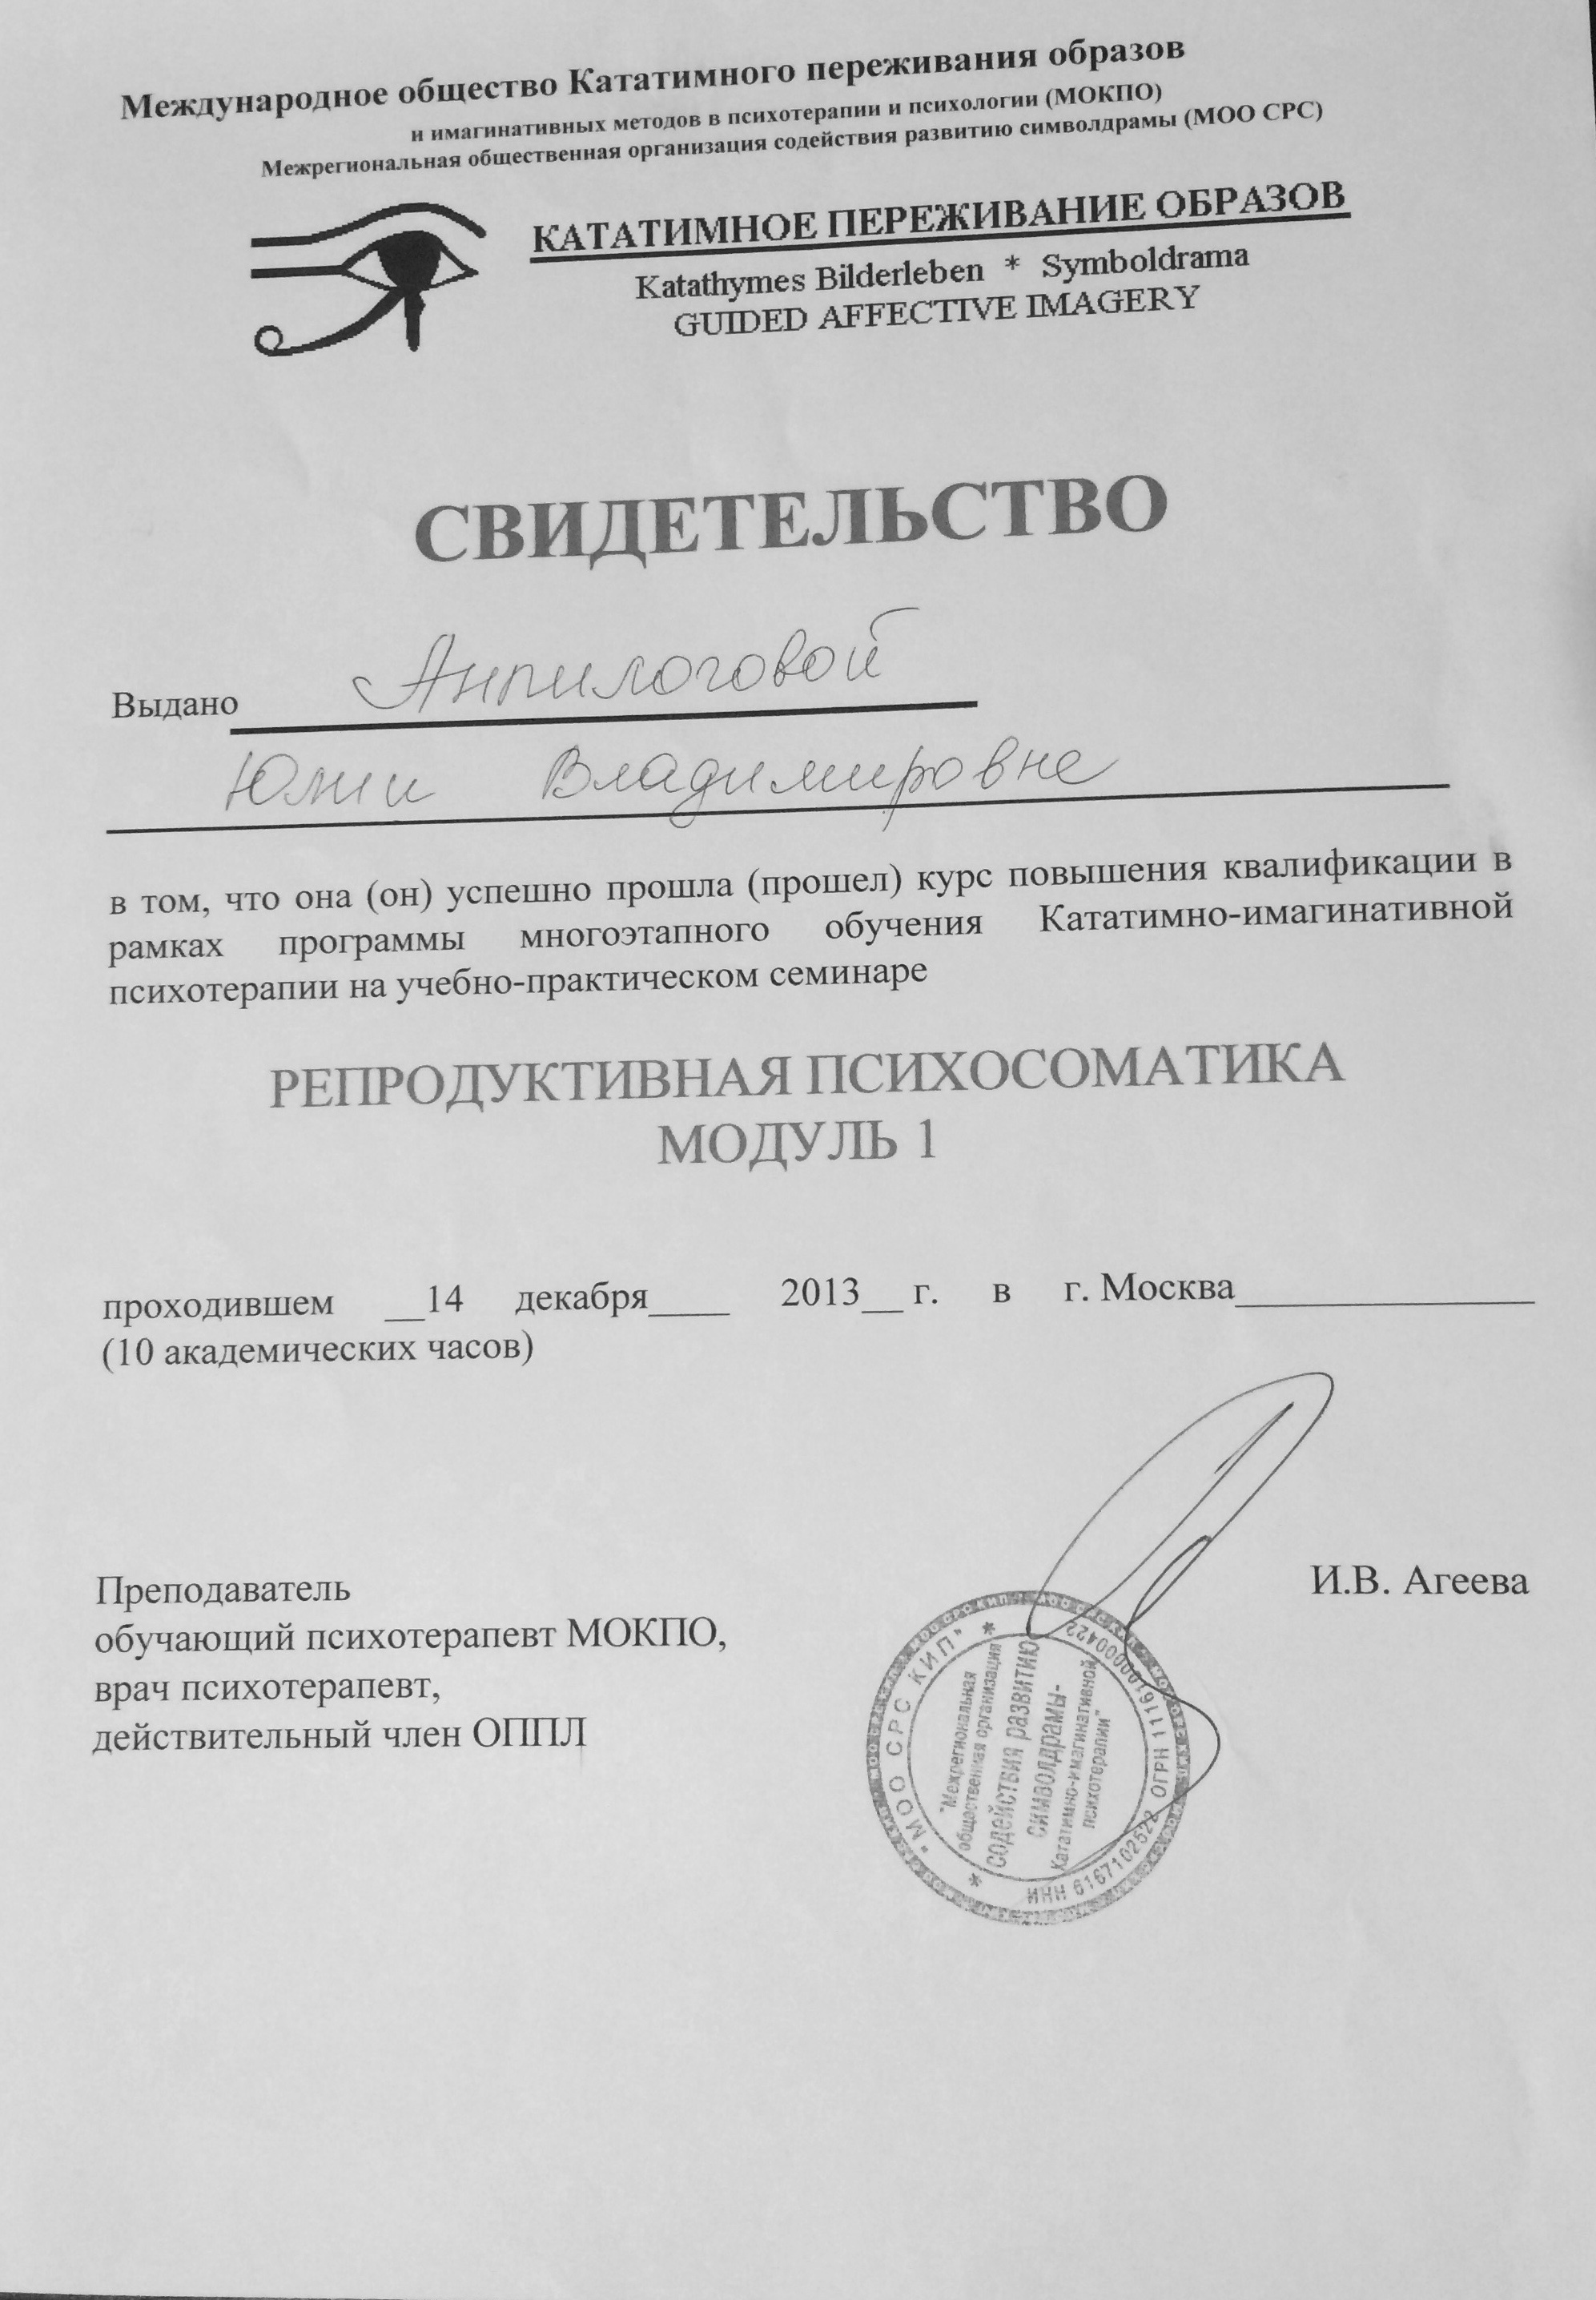 Международное общество Кататимного переживания образов
и имагинативных методов в психотерапии и психологии (МОКПО)
Межрегиональная общественная организация содействия развитию символдрамы (МОО СРС)
КАТАТИМНОЕ ПЕРЕЖИВАНИЕ ОБРАЗОВ
Katathymes Bilderleben * Symboldrama
GUIDED AFFECTIVE IMAGERY
СВИДЕТЕЛЬСТВО
Выдано Анпилоговой
Юлии Владимировне
в том, что она (он) успешно прошла (прошел) курс повышения квалификации в
рамках программы многоэтапного обучения Кататимно-имагинативной
психотерапии на учебно-практическом семинаре
РЕПРОДУКТИВНАЯ ПСИХОСОМАТИКА
МОДУЛЬ 1
проходившем __14 декабря____ 2013__ г. в г. Москва_______________
(10 академических часов)
Преподаватель
обучающий психотерапевт МОКПО,
врач психотерапевт,
действительный член ОППЛ
И.В. Агеева
* "МОО СРС КИП" *
ИНН 6167102522 ОГРН 1116100000422
"Межрегиональная
общественная организация
содействия развитию
символдрамы-
Кататимно-имагинативной
психотерапии"